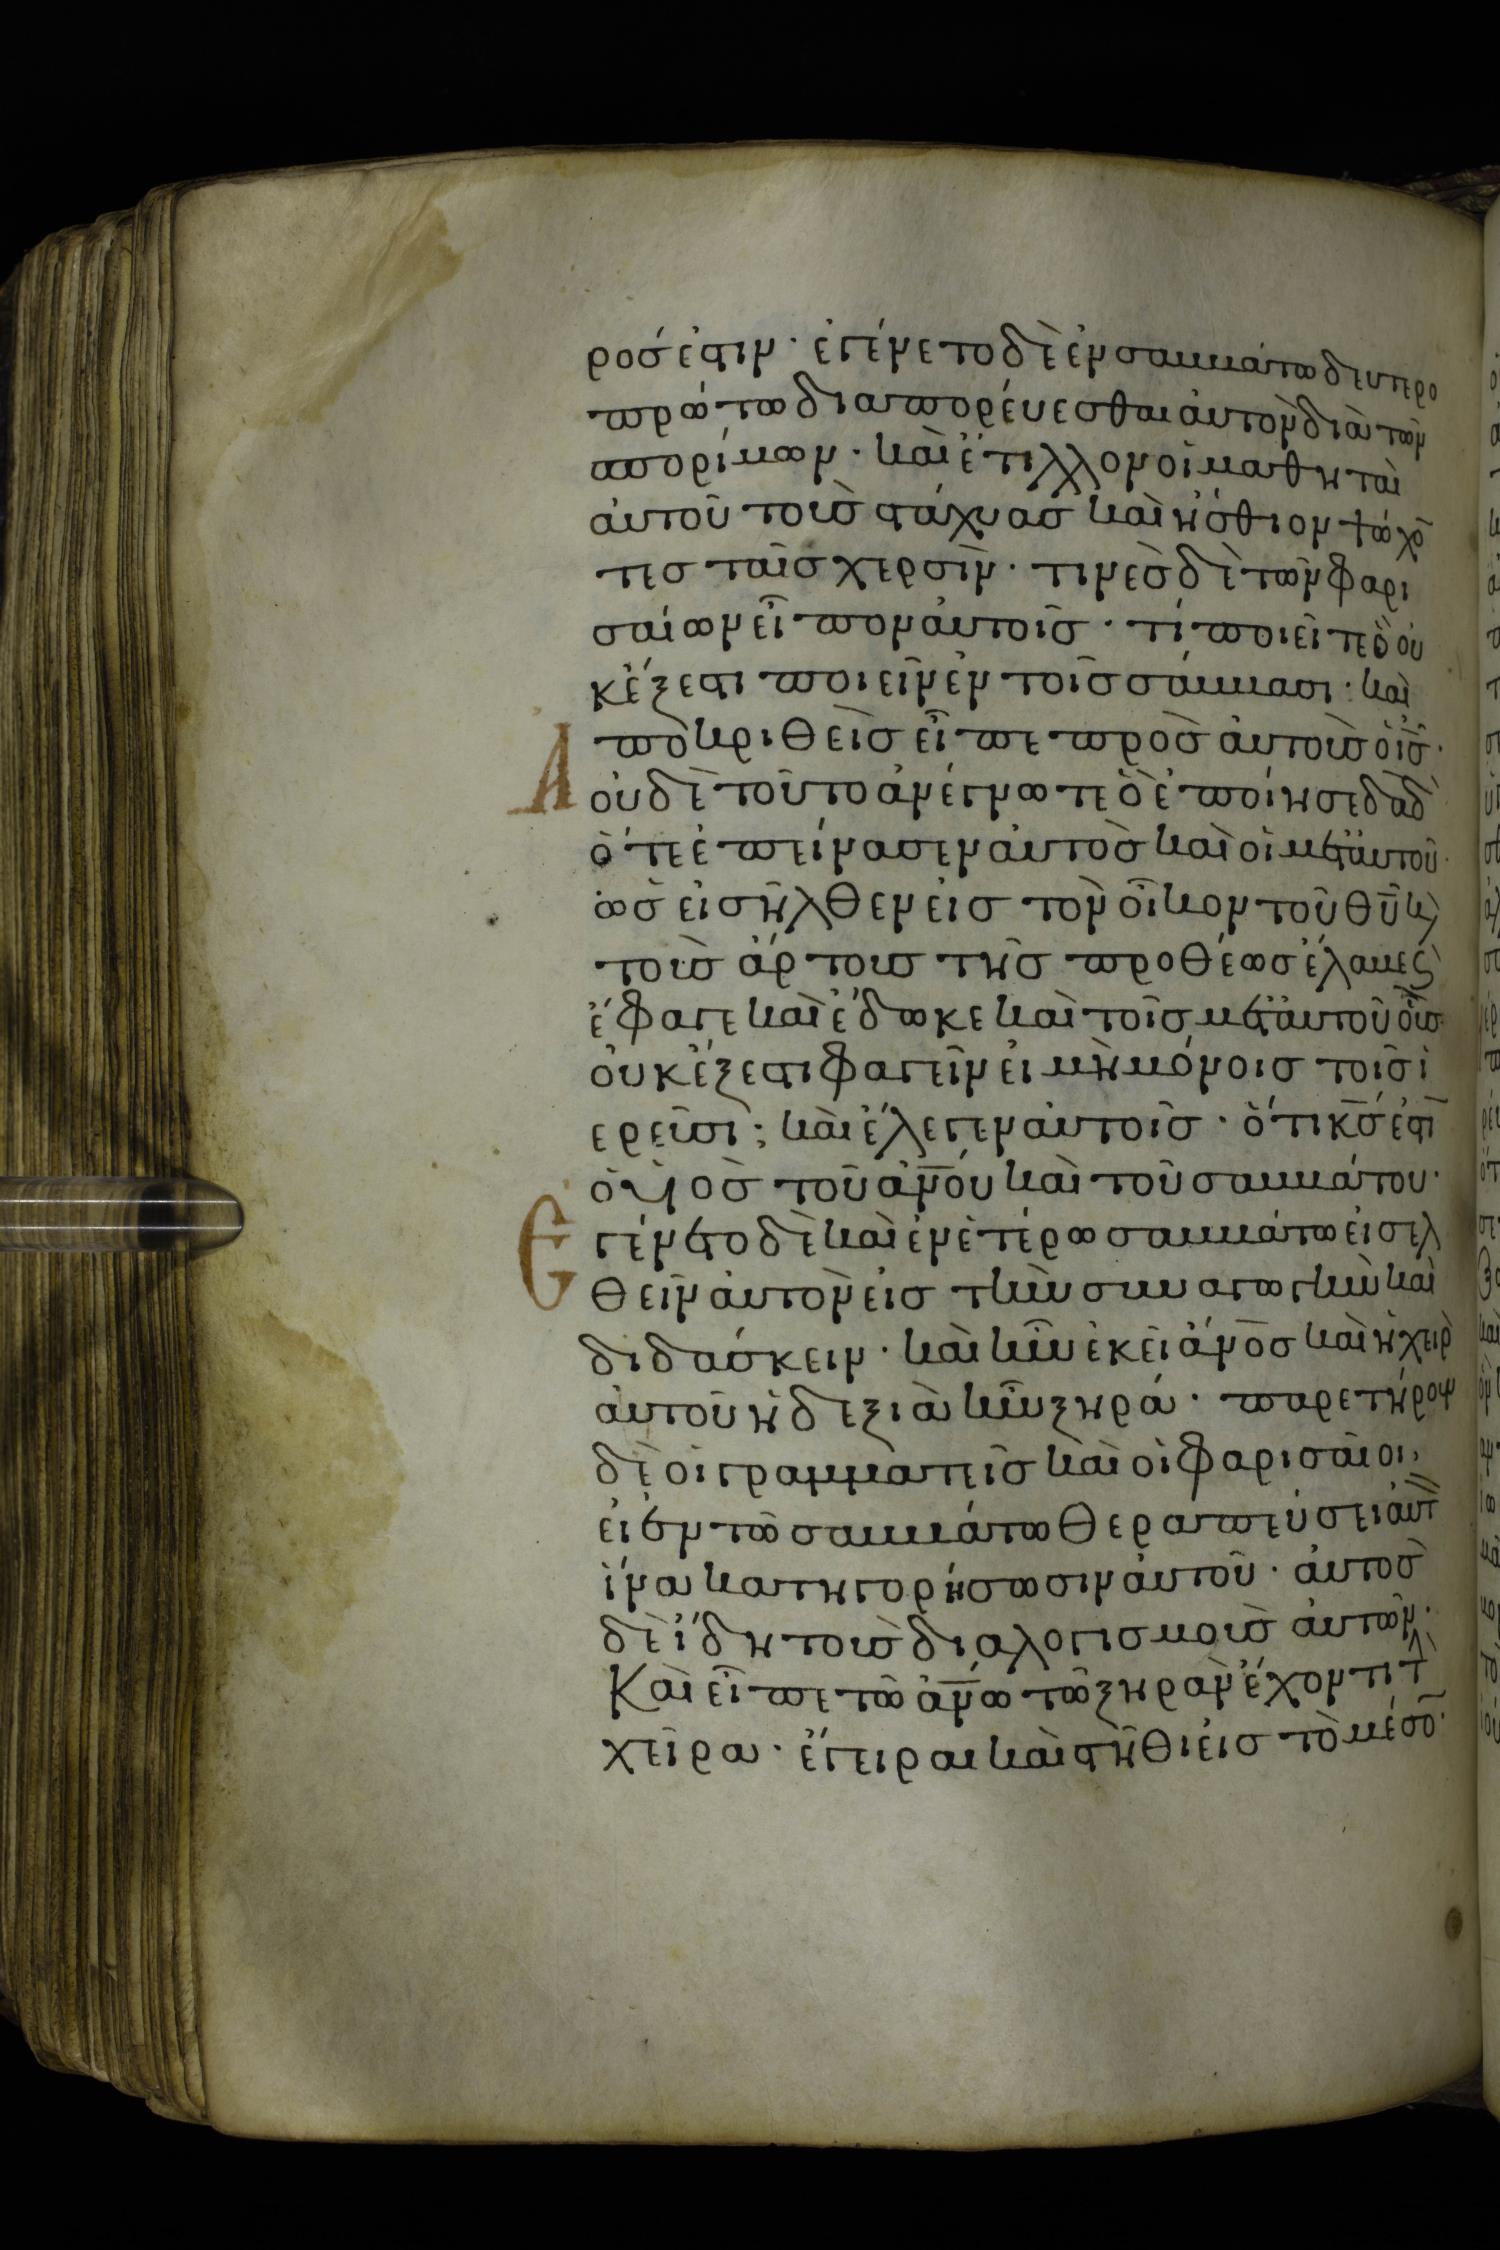 ρός ἐστιν · ἐγένετο δὲ ἐν σαββάτω δευτερο
πρώτω διαπορέυεσθαι ἀυτὸν διὰ τῶν
σπορίμων · καὶ ἔτιλλον οἱ μαθηταὶ
ἀυτοῦ τοὺς στάχυας καὶ ἤσθιον ψώχο̅
τες ταῖς χερσὶν · τινὲς δὲ τῶν φαρι
σαίων εἶπον ἀυτοῖς · τί ποιεῖτε ὃ ὀυ
κ ἔξεστι ποιεῖν ἐν τοῖς σάββασι · καὶ
Ἀποκριθεὶς εἶπε πρὸς ἀυτοὺς ὁ ἰ̅ς̅ ·
ὀυδὲ τοῦτο ἀνέγνωτε ὃ ἐποίησε δα̅δ̅
ὅτε ἐπείνασεν ἀυτὸς καὶ οἱ μετ' ἀυτοῦ ·
ὡς ἐισῆλθεν ἐις τὸν οἶκον τοῦ θ̅υ̅ κ,
τοὺς ἄρτους τῆς προθέσεως ἔλαβε ϛ
ἔφαγε καὶ ἔδωκε καὶ τοῖς μετ' ἀυτοῦ οὓς
ὀυκ ἔξεστι φαγεῖν ἐι μὴ μόνοις τοῖς ἱ
ερεῦσι ; καὶ ἔλεγεν ἀυτοῖς · ὅτι κ̅ς̅ ἐστι̅
ὁ υἱὸς τοῦ ἀν̅ο̅υ καὶ τοῦ σαββάτου ·
Ἐγένετο δὲ καὶ ἐν ἑτέρω σαββάτω ἐισελ
θεῖν ἀυτὸν ἐις τὴν συναγωγὴν καὶ
διδάσκειν · καὶ ἦν ἐκεῖ ἄν̅ο̅ς καὶ ἡ χεὶρ
ἀυτοῦ ἡ δεξιὰ ἦν ξηρά · παρετήρουν
δὲ οἱ γραμματεῖς καὶ οἱ φαρισαῖοι,
ἐι ἐν τῶ σαββάτω θεραπεύσει ἀυτ̅
ἵνα κατηγορήσωσιν ἀυτοῦ · ἀυτὸς
δὲ ἤδη τοὺς διαλογισμοὺς ἀυτῶν ·
Καὶ εἶπε τῶ ἀν̅ω̅ τῶ ξηρὰν ἔχοντι τ
χεῖρα · ἔγειραι καὶ στῆθι ἐις τὸ μέσο̅ ·